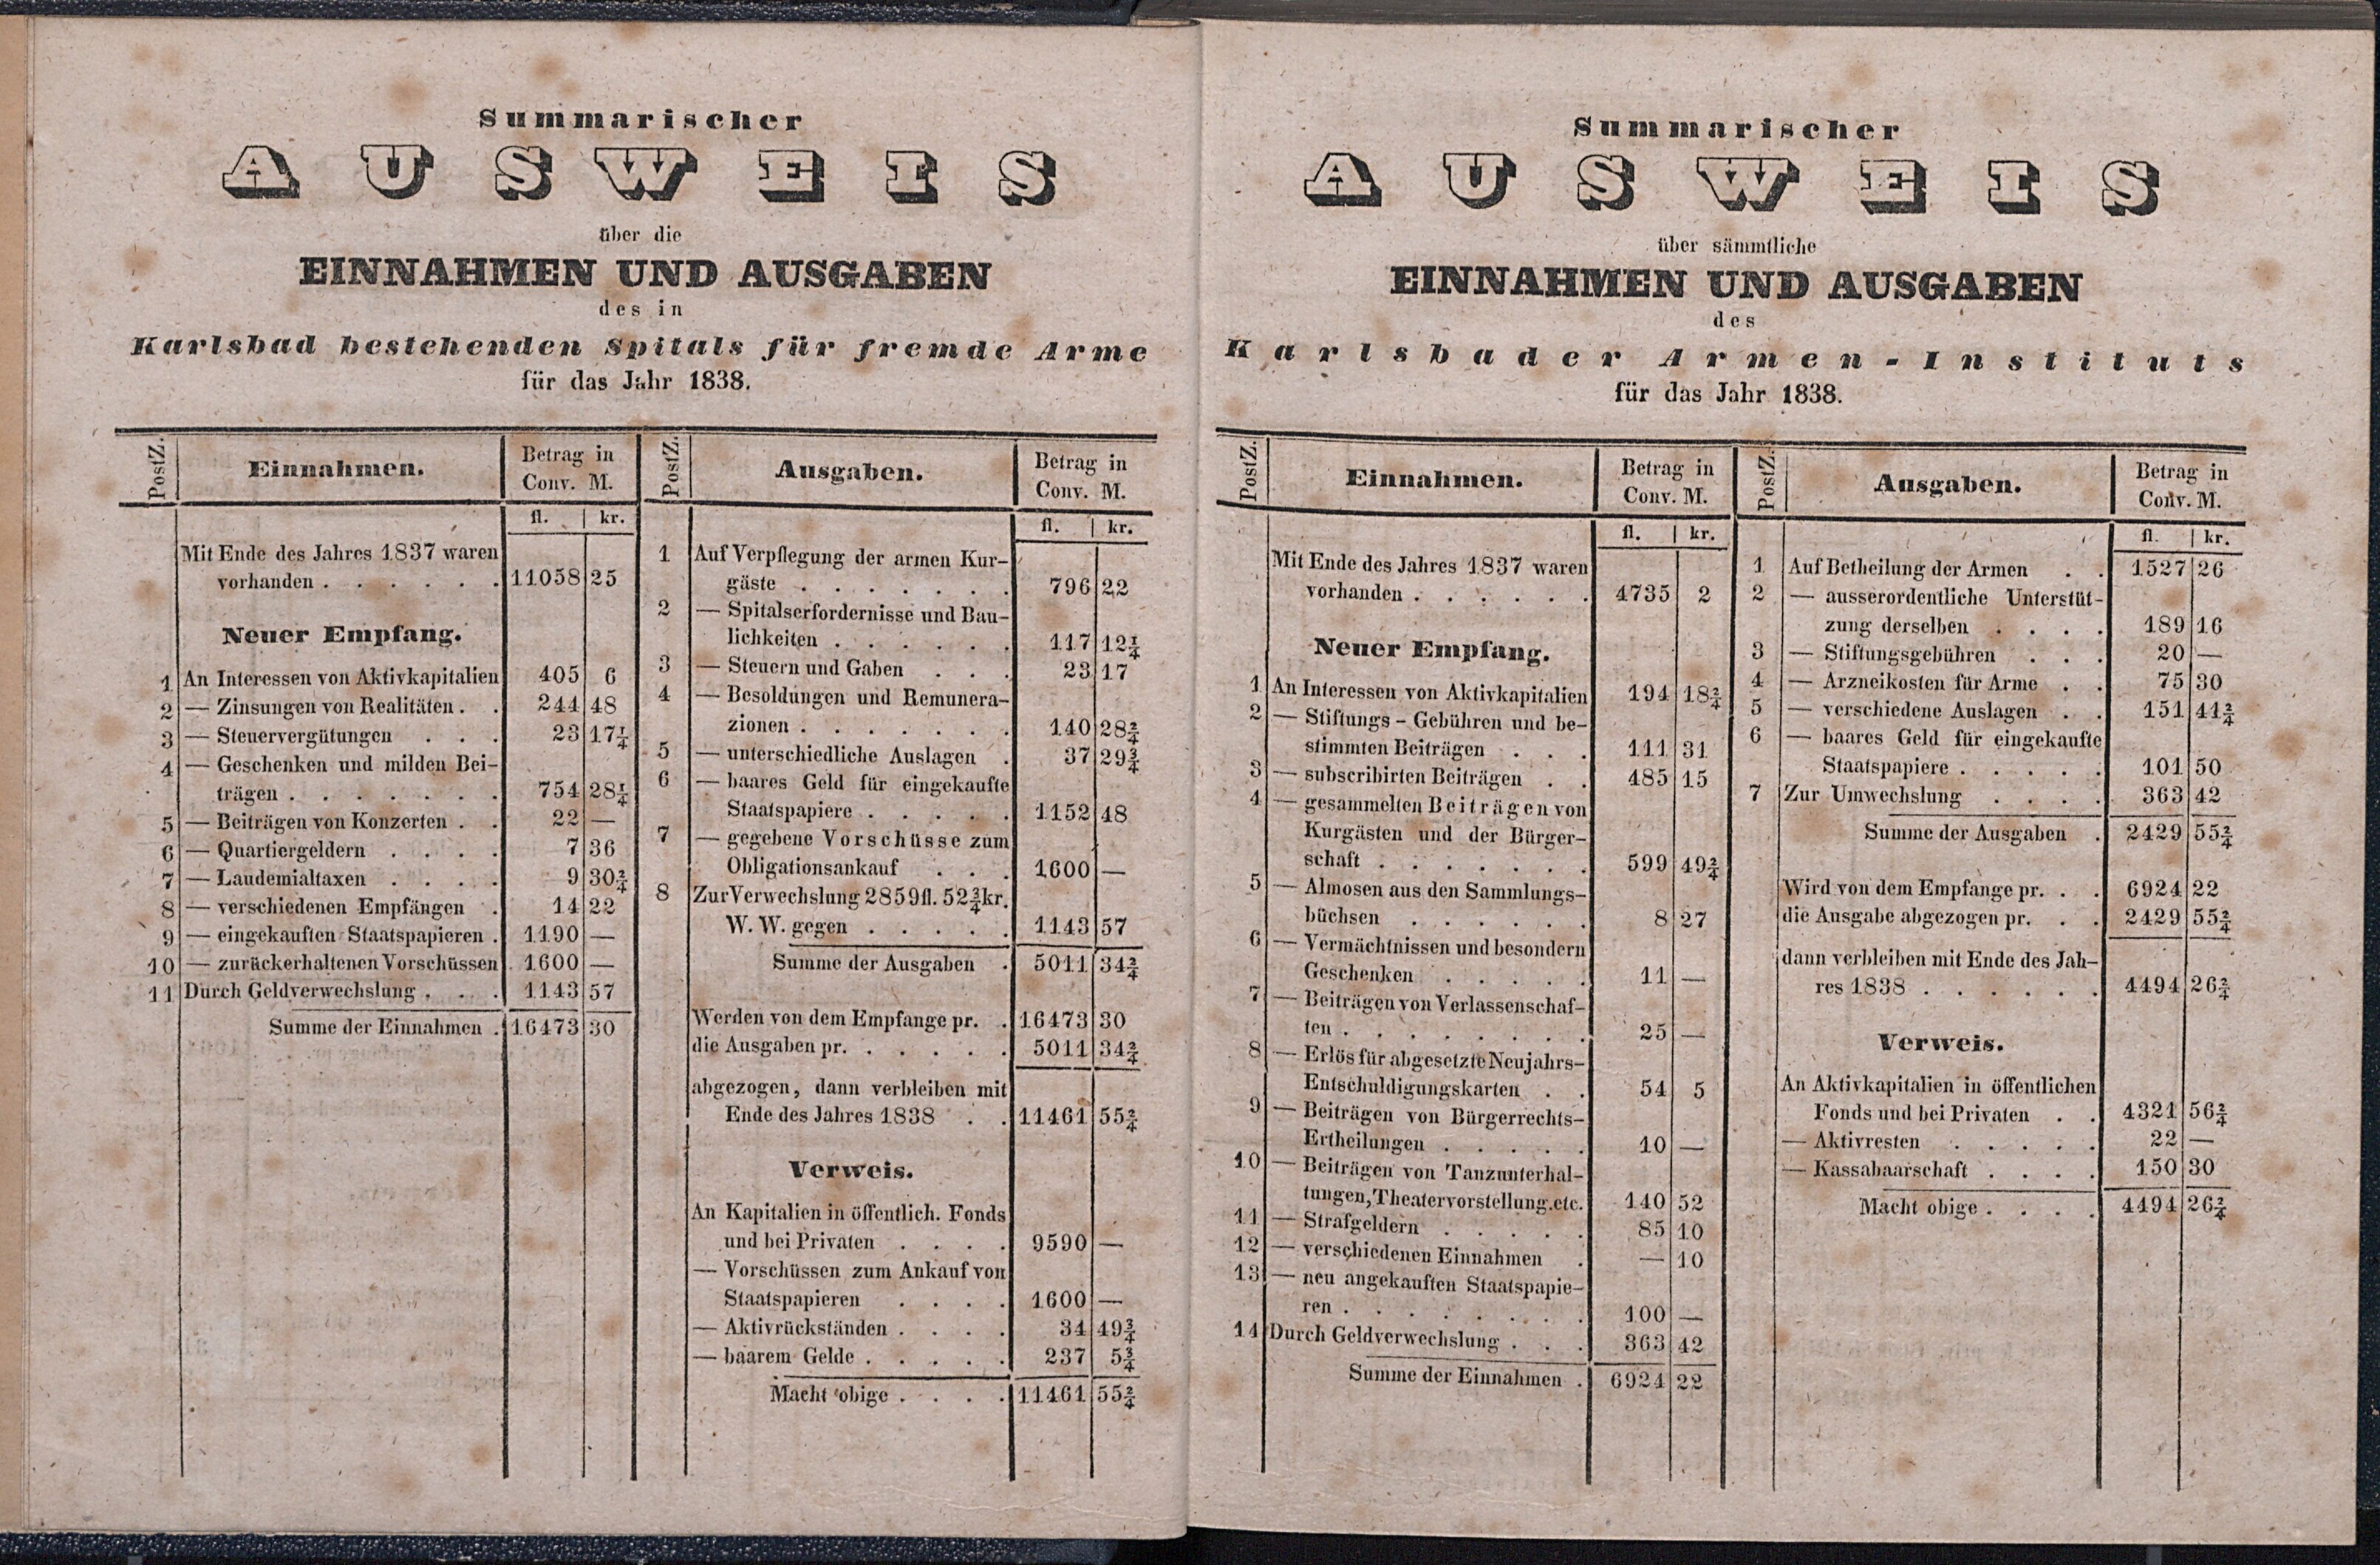 Summarischer
AUSWEIS
über die
EINNAHMEN UND AUSGABEN
des in
Karlsbad bestehenden Spitals für fremde Arme
für das Jahr 1838.
PostZ. Einnahmen. Betrag in Conv. M.
fl. kr.
Mit Ende des Jahres 1837 waren
vorhanden . . . . . . 11058 25
Neuer Empfang.
1 An Interessen von Aktivkapitalien 405 6
2 — Zinsungen von Realitäten . . 244 48
3 — Steuervergütungen . . . 23 17¼
4 — Geschenken und milden Bei-
trägen . . . . . . . 754 28¼
5 — Beiträgen von Konzerten . . 22 —
6 — Quartiergeldern . . . . 7 36
7 — Laudemialtaxen . . . . 9 302/4
8 — verschiedenen Empfängen . 14 22
9 — eingekauften Staatspapieren . 1190 —
10 — zurückerhaltenen Vorschüssen 1600 —
11 Durch Geldverwechslung . . . 1143 57
Summe der Einnahmen . 16473 30
PostZ. Ausgaben. Betrag in Conv. M.
fl. kr.
1 Auf Verpflegung der armen Kur-
gäste . . . . . . . 796 22
2 — Spitalserfordernisse und Bau-
lichkeiten . . . . . . 117 12¼
3 — Steuern und Gaben . . . 23 17
4 — Besoldungen und Remunera-
zionen . . . . . . . 140 282/4
5 — unterschiedliche Auslagen . 37 29¾
6 — baares Geld für eingekaufte
Staatspapiere . . . . . 1152 48
7 — gegebene Vorschüsse zum
Obligationsankauf . . . 1600 —
8 Zur Verwechslung 2859 fl. 52¾ kr.
W. W. gegen . . . . . 1143 57
Summe der Ausgaben . 5011 342/4
Werden von dem Empfange pr. . 16473 30
die Ausgaben pr. . . . . . 5011 342/4
abgezogen, dann verbleiben mit
Ende des Jahres 1838 . . 11461 552/4
Verweis.
An Kapitalien in öffentlich. Fonds
und bei Privaten . . . . 9590 —
— Vorschüssen zum Ankauf von
Staatspapieren . . . . 1600 —
— Aktivrückständen . . . . 34 49¾
— baarem Gelde . . . . . 237 5¾
Macht obige . . . . 11461 552/4
Summarischer
AUSWEIS
über sämmtliche
EINNAHMEN UND AUSGABEN
des
Karlsbader Armen-Instituts
für das Jahr 1838.
PostZ. Einnahmen. Betrag in Conv. M.
fl. kr.
Mit Ende des Jahres 1837 waren
vorhanden . . . . . . 4735 2
Neuer Empfang.
1 An Interessen von Aktivkapitalien 194 182/4
2 — Stiftungs-Gebühren und be-
stimmten Beiträgen . . . 111 31
3 — subscribirten Beiträgen . . 485 15
4 — gesammelten Beiträgen von
Kurgästen und der Bürger-
schaft . . . . . . . 599 492/4
5 — Almosen aus den Sammlungs-
büchsen . . . . . . 8 27
6 — Vermächtnissen und besondern
Geschenken . . . . . 11 —
7 — Beiträgen von Verlassenschaf-
ten . . . . . . . . 25 —
8 — Erlös für abgesetzte Neujahrs-
Entschuldigungskarten . . 54 5
9 — Beiträgen von Bürgerrechts-
Ertheilungen . . . . . 10 —
10 — Beiträgen von Tanzunterhal-
tungen, Theatervorstellung.etc. 140 52
11 — Strafgeldern . . . . . 85 10
12 — verschiedenen Einnahmen . — 10
13 — neu angekauften Staatspapie-
ren . . . . . . . . 100 —
14 Durch Geldverwechslung . . . 363 42
Summe der Einnahmen . 6924 22
PostZ. Ausgaben. Betrag in Conv. M.
fl. kr.
1 Auf Betheilung der Armen . . 1527 26
2 — ausserordentliche Unterstüt-
zung derselben . . . . 189 16
3 — Stiftungsgebühren . . . 20 —
4 — Arzneikosten für Arme . . 75 30
5 — verschiedene Auslagen . . 151 412/4
6 — baares Geld für eingekaufte
Staatspapiere . . . . . 101 50
7 Zur Umwechslung . . . . 363 42
Summe der Ausgaben . 2429 552/4
Wird von dem Empfange pr. . . 6924 22
die Ausgabe abgezogen pr. . . 2429 552/4
dann verbleiben mit Ende des Jah-
res 1838 . . . . . . 4494 262/4
Verweis.
An Aktivkapitalien in öffentlichen
Fonds und bei Privaten . . 4321 562/4
— Aktivresten . . . . . 22 —
— Kassabaarschaft . . . . 150 30
Macht obige . . . . 4494 262/4